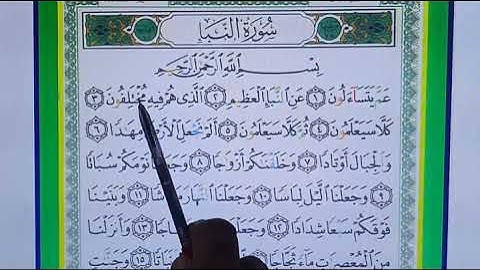 سُورَةُ النَّبَإِ
بِسْمِ ٱللَّهِ ٱلرَّحْمَٰنِ ٱلرَّحِيمِ
عَمَّ يَتَسَآءَلُونَ ١ عَنِ ٱلنَّبَإِ ٱلْعَظِيمِ ٢ ٱلَّذِى هُمْ فِيهِ مُخْتَلِفُونَ ٣
كَلَّا سَيَعْلَمُونَ ٤ ثُمَّ كَلَّا سَيَعْلَمُونَ ٥ أَلَمْ نَجْعَلِ ٱلْأَرْضَ مِهَٰدًا ٦
وَٱلْجِبَالَ أَوْتَادًا ٧ وَخَلَقْنَٰكُمْ أَزْوَٰجًا ٨ وَجَعَلْنَا نَوْمَكُمْ سُبَاتًا
٩ وَجَعَلْنَا ٱلَّيْلَ لِبَاسًا ١٠ وَجَعَلْنَا ٱلنَّهَارَ ١١ وَبَنَيْنَا
فَوْقَكُمْ سَبْعًا شِدَادًا ١٢ وَجَعَلْنَا ١٣ وَأَنزَلْنَا
مِنَ ٱلْمُعْصِرَٰتِ مَآءً ثَجَّاجًا ١٤ ١٥ وَجَنَّٰتٍ